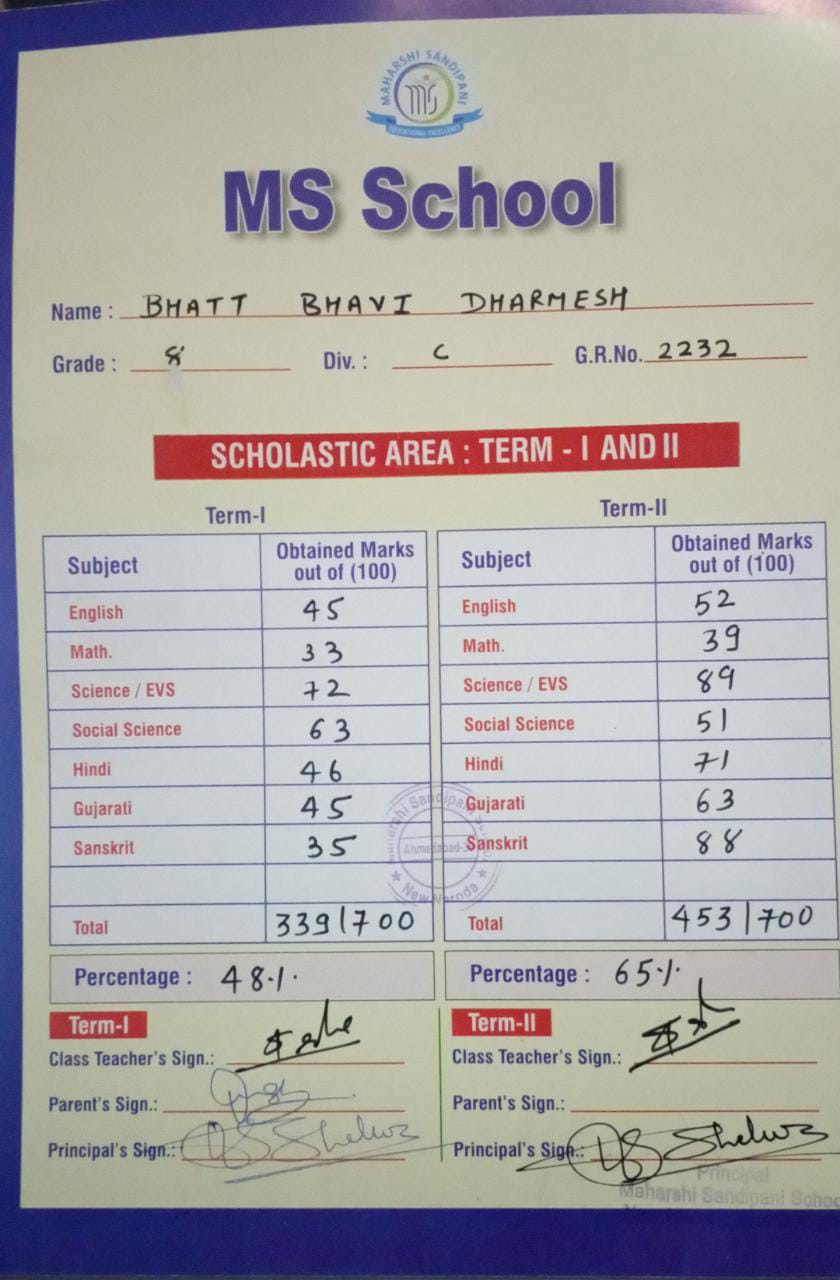 MAHARSHI SANDIPANI
ms
EDUCATIONAL EXCELLENCE
MS School
Name : BHATT BHAVI DHARMESH
Grade : 8 Div. : C G.R.No. 2232
SCHOLASTIC AREA : TERM - I AND II
Term-I
Subject Obtained Marks out of (100)
English 45
Math. 33
Science / EVS 72
Social Science 63
Hindi 46
Gujarati 45
Sanskrit 35
Total 339/700
Percentage : 48·/·
Term-I
Class Teacher's Sign.:
Parent's Sign.:
Principal's Sign.:
Term-II
Subject Obtained Marks out of (100)
English 52
Math. 39
Science / EVS 89
Social Science 51
Hindi 71
Gujarati 63
Sanskrit 88
Total 453/700
Percentage : 65·/·
Term-II
Class Teacher's Sign.:
Parent's Sign.:
Principal's Sign.:
Principal
Maharshi Sandipani School